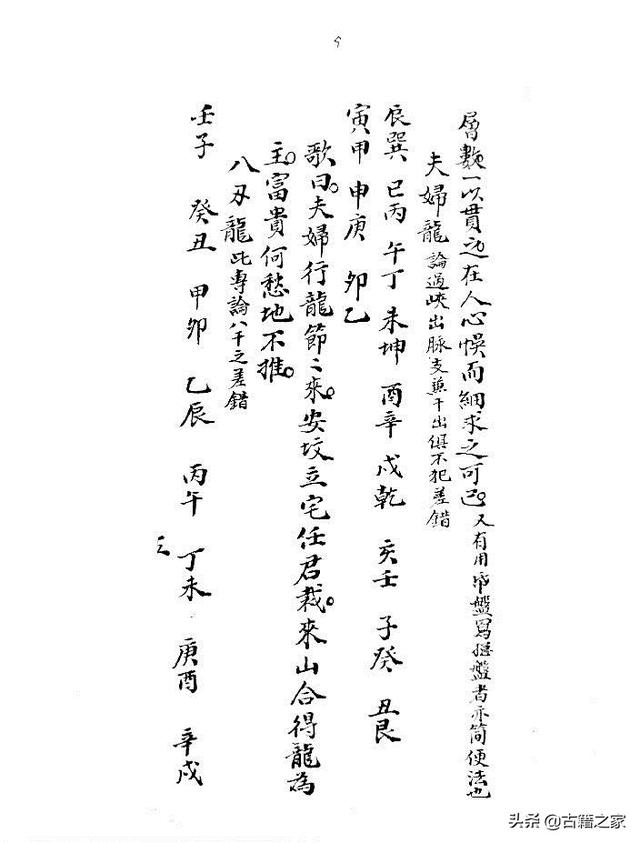 層數一以貫之在人心悞而細求之可已又有用帝盤爲挨盤者亦簡便法也
夫婦龍論過峽出脉支兼干出俱不犯差錯
辰巽 巳丙 午丁 未坤 酉辛 戌乾 亥壬 子癸 丑艮
寅甲 申庚 卯乙
歌曰夫婦行龍節〻來安坟立宅任君裁來山合得龍爲
主富貴何愁地不推
八刃龍此專論八干之差錯
壬子 癸丑 甲卯 乙辰 丙午 丁未 庚酉 辛戌
头条 @古籍之家